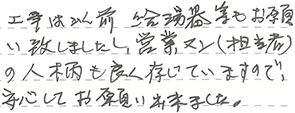 工事はかん前 給湯器等もお願
い致しましたし、営業マン(担当者)
の人柄も良く存じていますので、
安心してお願い出来ました。